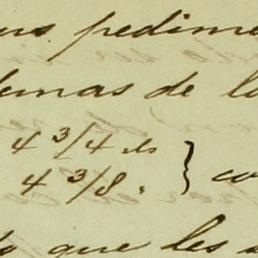 us pedime
demas de lo
4 3/4 ds
4 3/8. } co
que les s